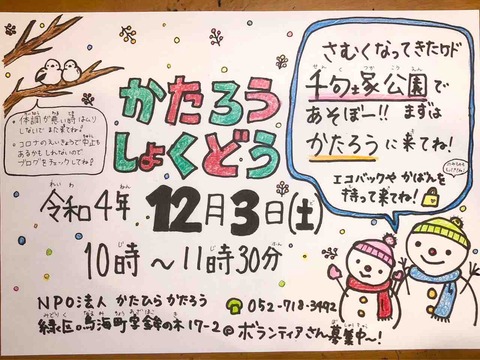 さむくなってきたけド
千句塚公園で
あそぼー!! まずは
かたろうに来てね!
エコバックや かばんを
持って来てね!
かたろう
しょくどう
・体調が悪い時はムリ
しないでまた来てね!
・コロナのえいきょうで中止も
あるかもしれないので
ブログをチェックしてね!
令和4年 12月3日(土)
10時〜11時30分
NPO法人 かたひらかたろう
052-718-3492
緑区鳴海町字
17-2 @ ボランティアさん募集中〜!